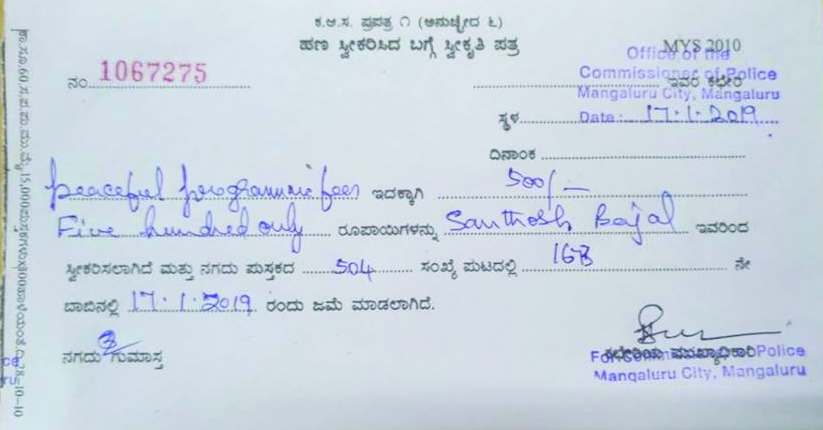 ಕ.ಆ.ಸ. ಪ್ರಪತ್ರ ೧ (ಅನುಚ್ಛೇದ ೬)
ಹಣ ಸ್ವೀಕರಿಸಿದ ಬಗ್ಗೆ ಸ್ವೀಕೃತಿ ಪತ್ರ
MYS 2010
Office of the
ನಂ. 1067275 ಇವರ ಕಛೇರಿ
Commissioner of Police
Mangaluru City, Mangaluru
ಸ್ಥಳ Date: 17.1.2019
ದಿನಾಂಕ
peaceful programme fees ಇದಕ್ಕಾಗಿ 500/-
Five hundred only ರೂಪಾಯಿಗಳನ್ನು Santhosh Bajal ಇವರಿಂದ
ಸ್ವೀಕರಿಸಲಾಗಿದೆ ಮತ್ತು ನಗದು ಪುಸ್ತಕದ 504 ಸಂಖ್ಯೆ ಪುಟದಲ್ಲಿ ನೇ
ಬಾಬಿನಲ್ಲಿ 17.1.2019 ರಂದು ಜಮೆ ಮಾಡಲಾಗಿದೆ.
ನಗದು ಗುಮಾಸ್ತ ಕಛೇರಿಯ ಮುಖ್ಯಾಧಿಕಾರಿ
For Commissioner of Police
Mangaluru City, Mangaluru